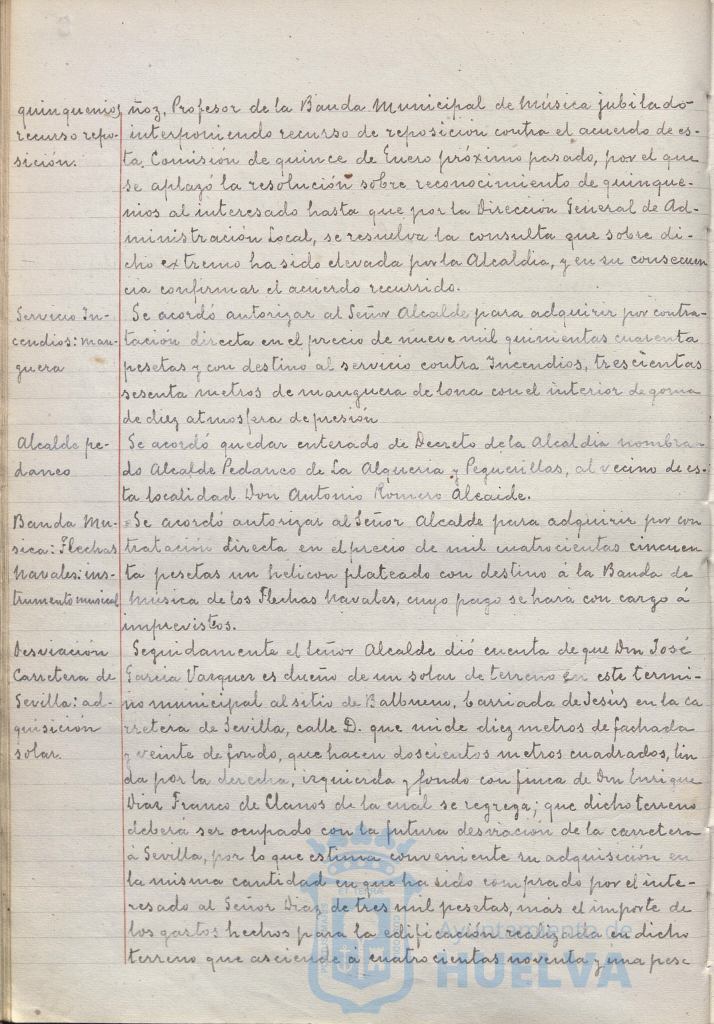 quinquenios,
recurso repo-
sición.
ñoz, Profesor de la Banda Municipal de Música jubilado
interponiendo recurso de reposición contra el acuerdo de es-
ta Comisión de quince de Enero próximo pasado, por el que
se aplazó la resolución sobre reconocimiento de quinque-
nios al interesado hasta que por la Dirección General de Ad-
ministración Local, se resuelva la consulta que sobre di-
cho extremo ha sido elevada por la Alcaldia, y en su consecuen
cia confirmar el acuerdo recurrido.
Servicio In-
cendios: man-
guera
Se acordó autorizar al Señor Alcalde para adquirir por contra-
tación directa en el precio de nueve mil quinientas cuarenta
pesetas y con destino al servicio contra Incendios, trescientas
sesenta metros de manguera de lona con el interior de goma
de diez atmosfera de presión
Alcalde pe-
daneo
Se acordó quedar enterado de Decreto de la Alcaldia nombran-
do Alcalde Pedaneo de La Alqueria y Peguerillas, al vecino de es-
ta localidad Don Antonio Romero Alcaide.
Banda Mu-
sica: Flechas
Navales: ins-
trumento musical
Se acordó autorizar al Señor Alcalde para adquirir por con
tratación directa en el precio de mil cuatrocientas cincuen
ta pesetas un helicon plateado con destino á la Banda de
Música de los Flechas Navales, cuyo pago se hará con cargo á
imprevistos.
Desviación
Carretera de
Sevilla: ad-
quisición
solar.
Seguidamente el Señor Alcalde dió cuenta de que Don José
Garcia Vazquez es dueño de un solar de terreno en este termi-
no municipal al sitio de Balbueno, barriada de Jesús en la ca
rretera de Sevilla, calle D. que mide diez metros de fachada
y veinte de fondo, que hacen doscientos metros cuadrados, lin
da por la derecha, izquierda y fondo con finca de Don Enrique
Diaz Franco de Llanos de la cual se segrega; que dicho terreno
deberá ser ocupado con la futura desviación de la carretera
á Sevilla, por lo que estima conveniente su adquisición en
la misma cantidad en que ha sido comprado por el inte-
resado al Señor Diaz de tres mil pesetas, más el importe de
los gastos hechos para la edificación realizada en dicho
terreno que asciende á cuatrocientas noventa y una pese
Ayuntamiento de
HUELVA